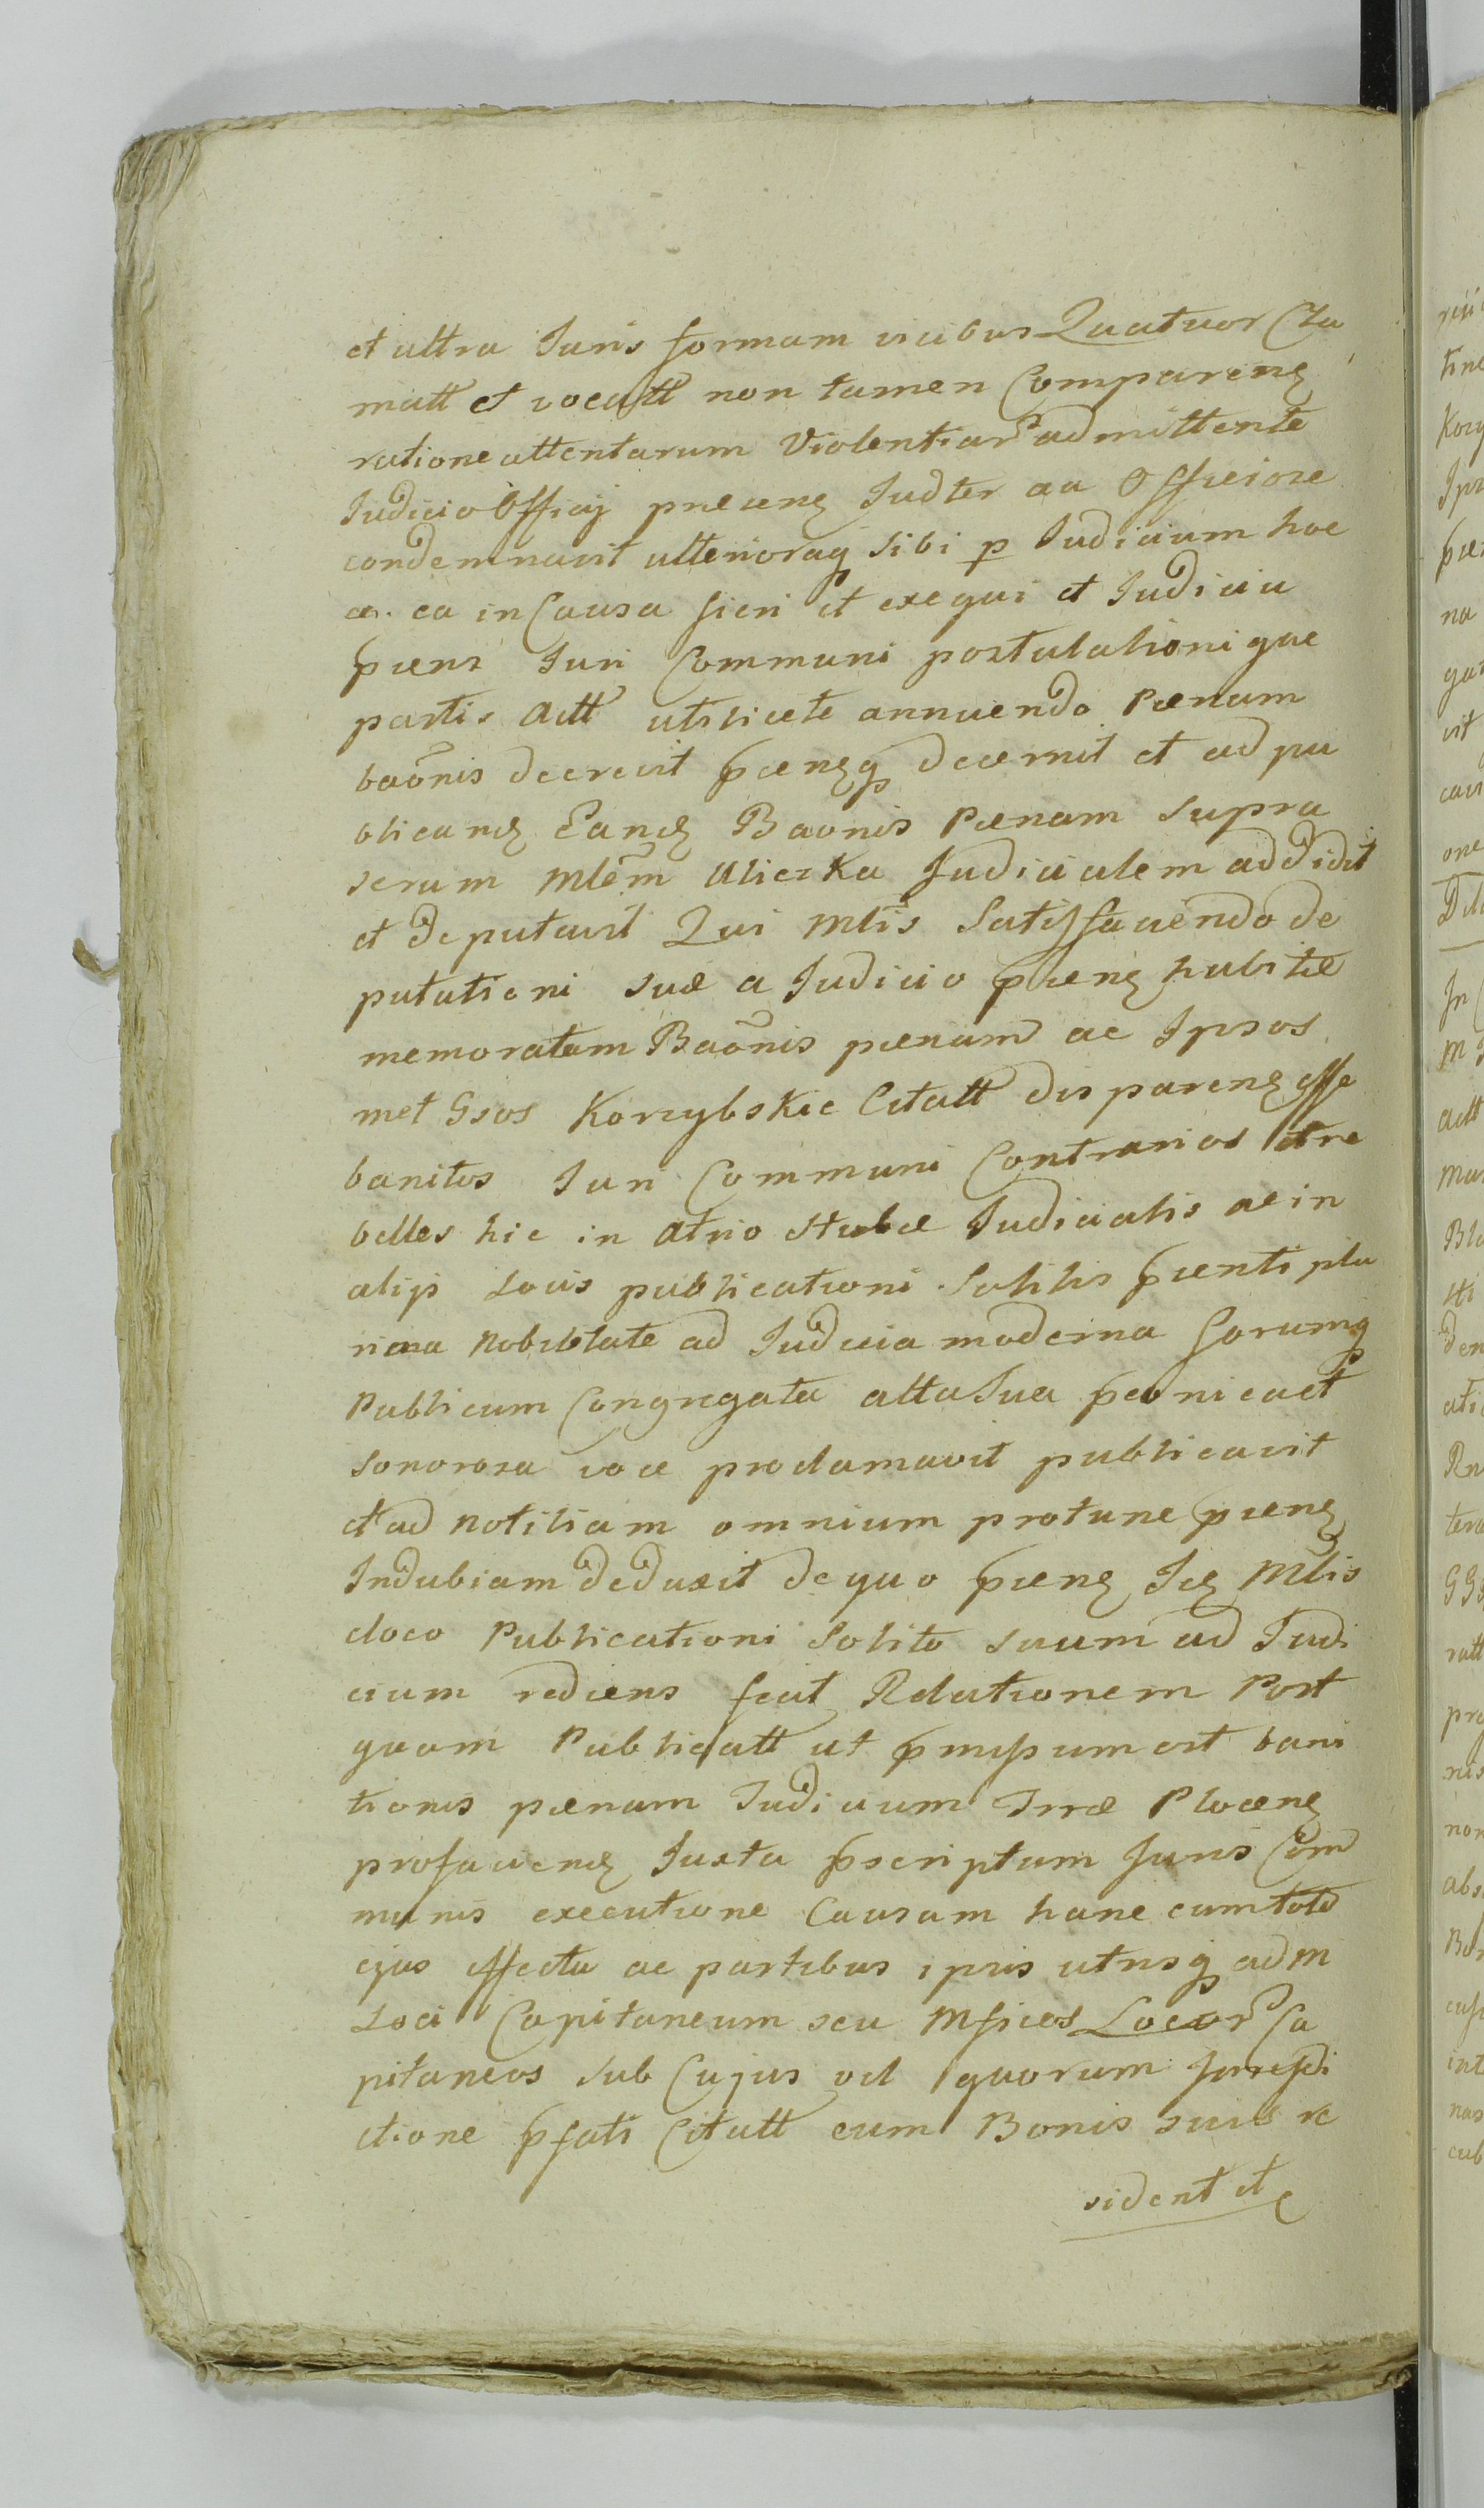 et ultra Juris formam vicibus Quatuor Cla
matt et vocatt non tamen Comparenę
ratione attentarum Violentiar admittente
Judicio Officij praesenę Judter ac Officiose
condemnavit ulterioraq sibi p Judicium hoc
ea in Causa fieri et exequi et Judiciu
pſens Juri Communi postulationi que
partis Actt utilicete annuendo Pœnam
baōnis decrevit pſensq decernit et ad pu
blicandę Eandę Baonis Pœnam supra
scrum Mlēm Uliczka Judicialem addidit
et deputavit Qui Mlis Satisfaciendo de
putationi suæ a Judicio pſenę habitæ
memoratam Baōnis pœnam ac Ipsos
met Gsos Korzybskie Citatt disparenę esse
banitos Juri Communi Contrarios et re
belles hic in Atrio Stubæ Judicialis ac in
alijs Locis publicationi Solitis pſenti plu
rima Nobilitate ad Judicia moderna forumq
Publicum Congregata alta Sua pconicact
sonorosa voce proclamavit publicavit
et ad notitiam omnium protunc pſenę
Indubiam deduxit de quo pſenę Idę Mlis
e loco Publicationi Solito suum ad Judi
cium rediens fecit Relationem Post
quam Publicatt ut pmissum est bani
tionis pœnam Judicium Trræ Plocenę
profaciendę Juxta pscriptum Juris Com
munis executione Causam hanc cum toto
ejus effectu ac partibus ipsis utrisq ad M
Loci Capitaneum seu Mficos Locor Ca
pitaneos sub Cujus vel quorum Jurisdi
ctione pfati Citatt cum Bonis suis re
sident et